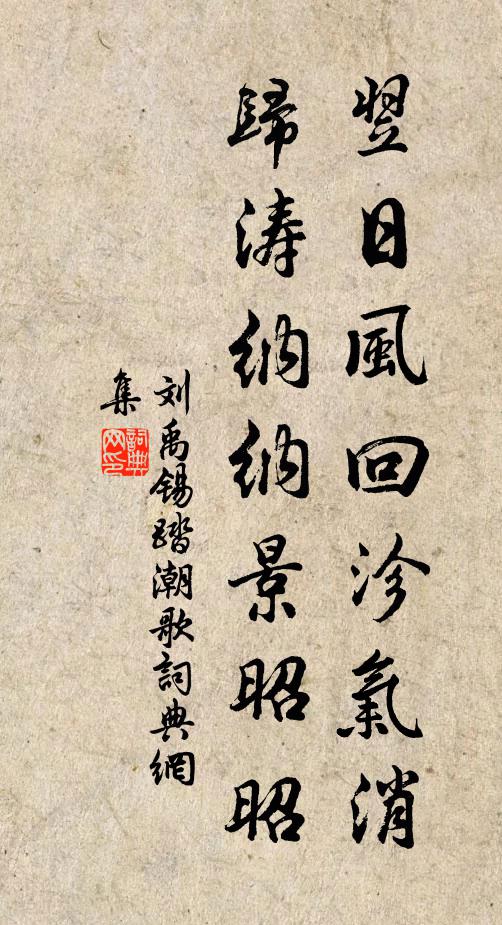 翌日風回沴氣消
歸濤納納景昭昭
刘禹锡踏潮歌詞典網
集
詞典网印